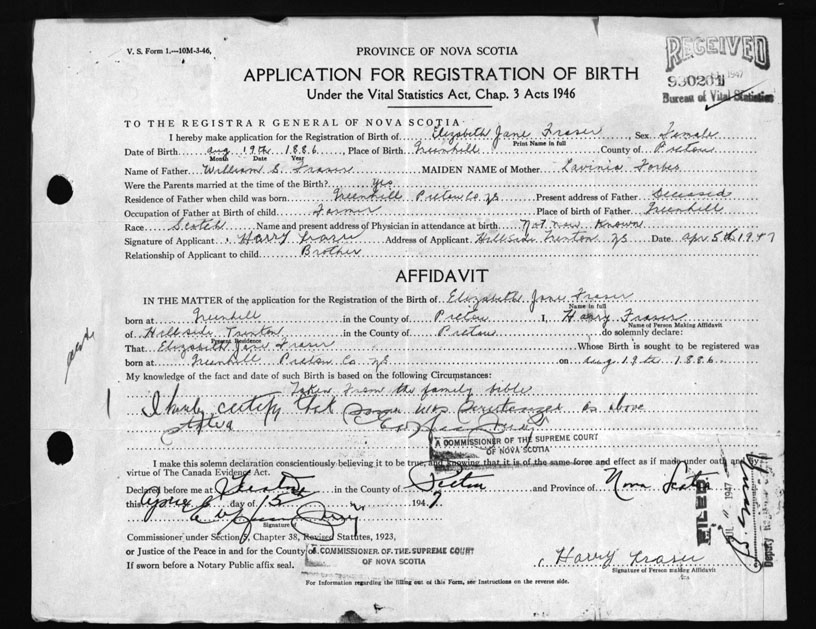 V. S. Form 1.—10M-3-46.
PROVINCE OF NOVA SCOTIA
RECEIVED
930201 1947
Bureau of Vital Statistics
APPLICATION FOR REGISTRATION OF BIRTH
Under the Vital Statistics Act, Chap. 3 Acts 1946
TO THE REGISTRAR GENERAL OF NOVA SCOTIA
I hereby make application for the Registration of Birth of Elizabeth Jane Fraser, Sex Female
Print Name in full
Date of Birth Aug 19th 1886, Place of Birth Greenhill County of Pictou
Month Date Year
Name of Father William S. Fraser MAIDEN NAME of Mother Lavinia Forbes
Were the Parents married at the time of the Birth? Yes
Residence of Father when child was born Greenhill Pictou Co NS Present address of Father Deceased
Occupation of Father at Birth of child Farmer Place of birth of Father Greenhill
Race Scotch Name and present address of Physician in attendance at birth Not now Known
Signature of Applicant Harry Fraser Address of Applicant Hillside Trenton NS Date Apr 5th 1947
Relationship of Applicant to child Brother
AFFIDAVIT
IN THE MATTER of the application for the Registration of the Birth of Elizabeth Jane Fraser
Name in full
born at Greenhill in the County of Pictou I, Harry Fraser
Name of Person Making Affidavit
of Hillside Trenton in the County of Pictou do solemnly declare:
Present Residence
That Elizabeth Jane Fraser Whose Birth is sought to be registered was
born at Greenhill Pictou Co NS on Aug 19th 1886
My knowledge of the fact and date of such Birth is based on the following Circumstances:
Taken from the family bible
I hereby certify that same was scrutinized as above
stated
A COMMISSIONER OF THE SUPREME COURT
OF NOVA SCOTIA
I make this solemn declaration conscientiously believing it to be true, and knowing that it is of the same force and effect as if made under oath and by
virtue of The Canada Evidence Act.
Declared before me at in the County of Pictou and Province of Nova Scotia
this day of 1947
Signature of
Commissioner under Section 5, Chapter 38, Revised Statutes, 1923,
or Justice of the Peace in and for the County of
A COMMISSIONER OF THE SUPREME COURT
OF NOVA SCOTIA
If sworn before a Notary Public affix seal.
Harry Fraser
Signature of Person making Affidavit
FILED
1947
Deputy
For Information regarding the filling out of this Form, see Instructions on the reverse side.